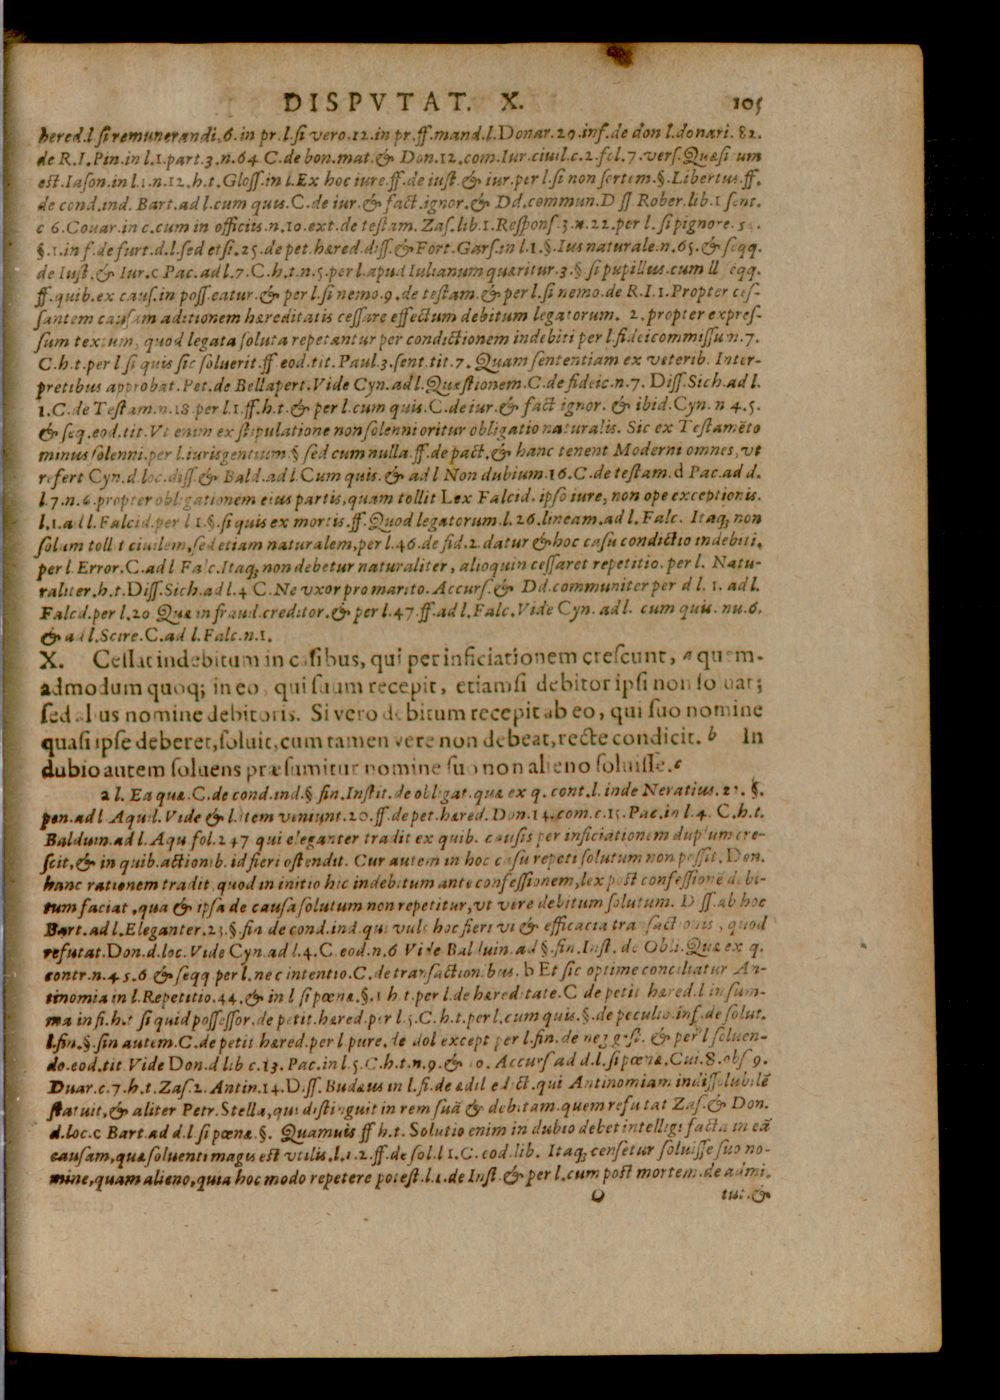 DISPVTAT. X. 105
hered.l si remunerandi.6. in pr.l.si vero.12.in pr.ff.mand.l.Donar.29.inf.de don l.donari. 82.
de R.I.Pin.in l.1.part.3.n.64 C.de bon.mat.& Don.12.com.Iur ciuil.c.2.fol.7.vers.
est.Iason.in l.1.n.12.h.t.Gloss.in l.Ex hoc iure.ff.de iust.& iur.per l.si non sortem.§.Libertus.ff.
de cond.ind. Bart.ad l.cum quis.C.de iur.& fact.ignor.& Dd.commun.D ff.Rober.lib.1 sent.
c 6.Couar.in c.cum in officiis.n.10.ext.de testam. Zas.lib.1.Respons.3.n.22.per l.si pignore.
§.1.in f.de furt.d.l.sed etsi.25.de pet.hæred.diss.& Fort.Gars.in l.1.§.Ius naturale.n.65.& seqq.
de Iust.& Iur.c Pac.ad l.7.C.h.t.n.5.per l.apud Iulianum quæritur.3.§ si pupillus.cum ll
ff.quib.ex caus.in poss.eatur.& per l.si nemo.9.de testam.& per l.si nemo.de R.I.1.Propter ces-
santem causam aditionem hæreditatis cessare effectum debitum legatorum. 2.propter expres-
sum textum, quod legata soluta repetantur per condictionem indebiti per l.fideicommissum.7.
C.h.t.per l si quis sic soluerit.ff.eod.tit.Paul.3.sent.tit.7. Quam sententiam ex veterib. Inter-
pretibus approbat.Pet.de Bellapert.Vide Cyn.ad l.Quæstionem.C.de fideic.n.7. Diss.Sich.ad l.
1.C.de Testam.n.18.per l.1.ff.h.t.& per l.cum quis.C.de iur.& fact ignor. & ibid.Cyn.n 4.5.
& seq.eod.tit.Vt enim ex stipulatione non solenni oritur obligatio naturalis. Sic ex Testamẽto
minus solenni.per l.iurisgentium.§ sed cum nulla.ff.de pact.& hanc tenent Moderni omnes,vt
refert Cyn.d.loc.diss.& Bald.ad l.Cum quis.& ad l Non dubium.16.C.de testam.d Pac.ad d.
l.7.n.6.propter obligationem eius partis,quam tollit Lex Falcid.ipso iure, non ope exceptionis.
l.1.ad l.Falcid.per l 1.§.si quis ex mortis.ff.Quod legatorum.l.26.lineam.ad l.Falc. Itaq; non
solum tollit ciuilem,sed etiam naturalem,per l.46.de fid.2.datur & hoc casu condictio indebiti.
per l Error.C.ad l Falc.Itaq; non debetur naturaliter, alioquin cessaret repetitio.per l. Natu-
raliter.h.t.Diss.Sich.ad l.4 C.Ne vxor pro marito.Accurs.& Dd.communiter per d l. 1. ad l.
Falcd.per l.20 Quæ in fraud.creditor.& per l.47.ff.ad l.Falc.Vide Cyn. ad l. cum quis. nu.6.
& ad l.Scire.C.ad l.Falc.n.1.
X. Cessat indebitum in casibus, qui per inficiationem crescunt, a quem-
admodum quoq; in eo, qui suum recepit, etiamsi debitor ipsi non soluat;
sed alius nomine debitoris. Si vero debitum recepit ab eo, qui suo nomine
quasi ipse deberet,soluit,cum tamen vere non debeat,recte condicit. b In
dubio autem soluens præsumitur nomine suo non alieno soluisse. c
a l. Ea quæ.C.de cond.ind.§ fin.Instit.de obligat.quæ ex q. cont.l.inde Neratius. §.
pen.ad l Aquil.Vide & l.item veniunt.20.ff.de pet.hæred.Don.14.com.c.15.Pac.in l.4. C.h.t.
Balduin.ad l.Aqu fol.247 qui eleganter tradit ex quib. causis per inficiationem duplum cre-
scit,& in quib.actionib.id fieri ostendit. Cur autem in hoc casu repeti solutum non possit. Don.
hanc rationem tradit,quod in initio hic indebitum ante confessionem,lex post confessionẽ debi-
tum faciat,qua & ipsa de causa solutum non repetitur,vt vere debitum solutum. Diss.ab hoc
Bart.ad l.Eleganter.23.§.fin de cond.ind.qui vult hoc fieri vi & efficacia transactionis, quod
refutat.Don.d.loc.Vide Cyn.ad l.4.C.eod.n.6 Vide Balduin.ad §.fin.Inst. de Obli.Quæ ex q.
contr.n.4 5.6 & seqq per l.nec intentio.C.de transactionibus. b Et sic optime conciliatur An-
tinomia in l.Repetitio.44.& in l si pœnæ.§.1 h t.per l.de hæreditate.C de petit hæred.l in sum-
ma in fi.h.t si quid possessor.de petit.hæred.per l.5.C.h.t.per l.cum quis.§.de peculio.inf.de solut.
l.fin.§.sin autem.C.de petit hæred.per l.pure.de dol except per l.fin.de neg gest. & per l soluen-
do.eod.tit.Vide Don.d lib c.13.Pac.in l.5.C.h.t.n.9.& 10. Accurs ad d.l.si pœnæ.Cui.8.obs 9.
Duar.c.7.h.t.Zas.2.Antin.14.Diss.Budæus in l.si.de ædil edict.qui Antinomiam indissolubilẽ
statuit,& aliter Petr.Stella,qui distinguit in rem suã & debitam.quem refutat Zas.& Don.
d.loc.c Bart.ad d.l si pœnæ.§. Quamuis ff h.t. Solutio enim in dubio debet intelligi facta in eã
causam,quæ soluenti magis est vtilis.l.1.2.ff.de sol.l 1.C.eod.lib. Itaq; censetur soluisse suo no-
mine,quam alieno,quia hoc modo repetere potest.l.1.de Inst.& per l.cum post mortem.de admi.
O tut.&